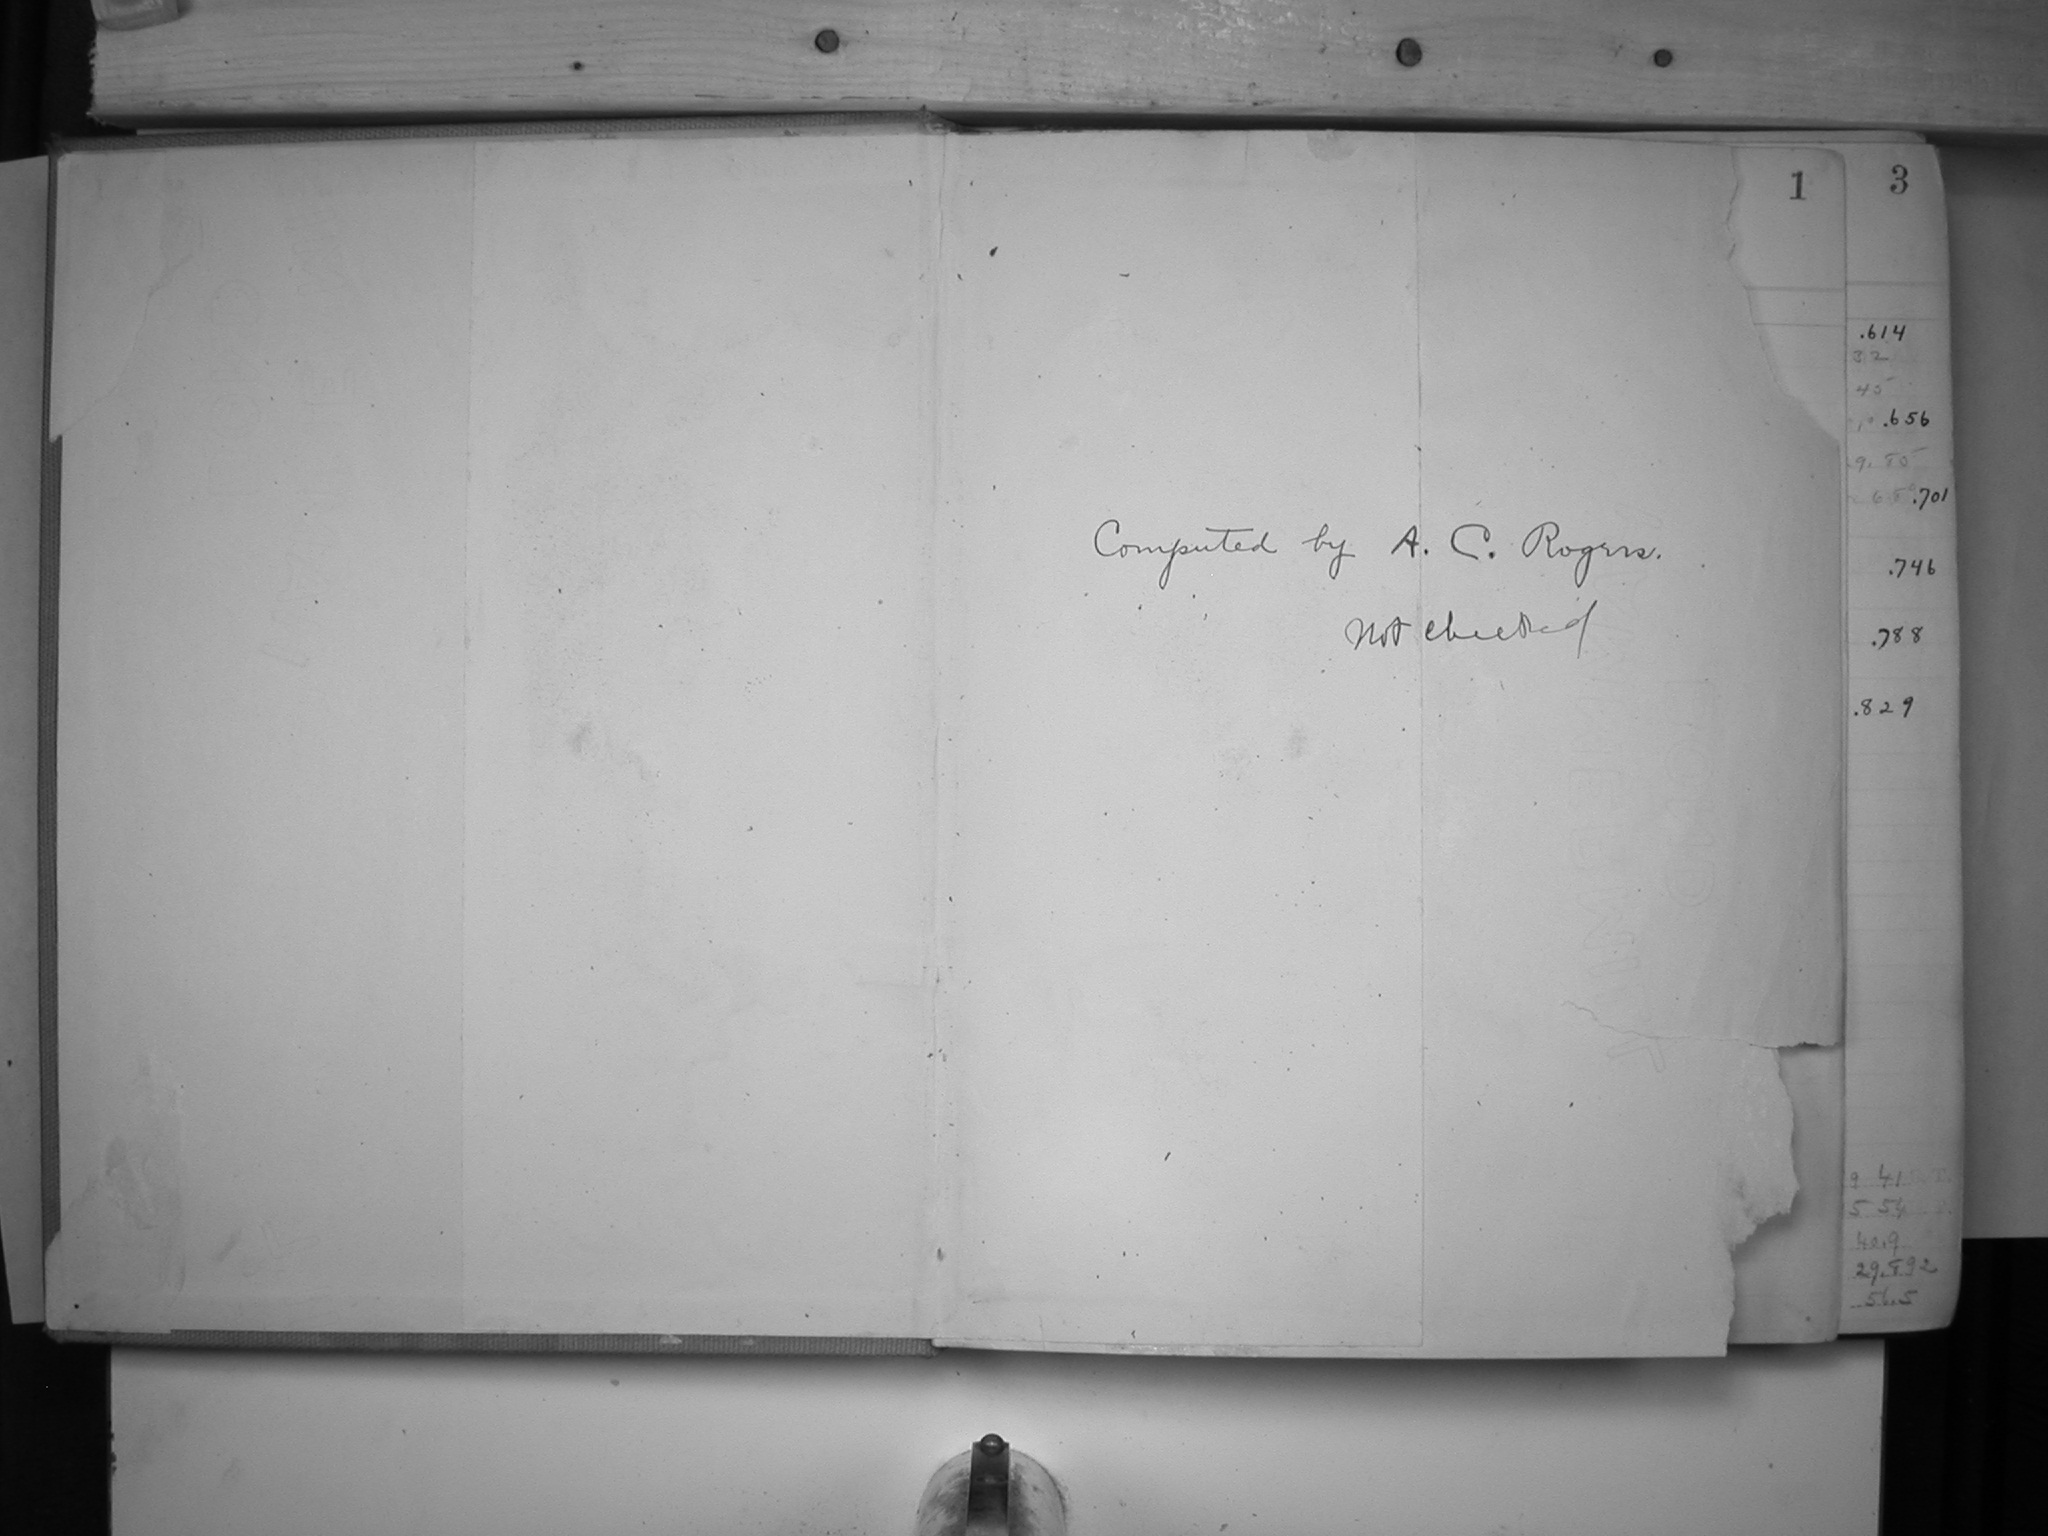 1
3
Computed by A. C. Rogers.
Not checked
.614
32
45
.656
.701
.746
.788
.829
9 41
5 54
40.9
29.892
56.5